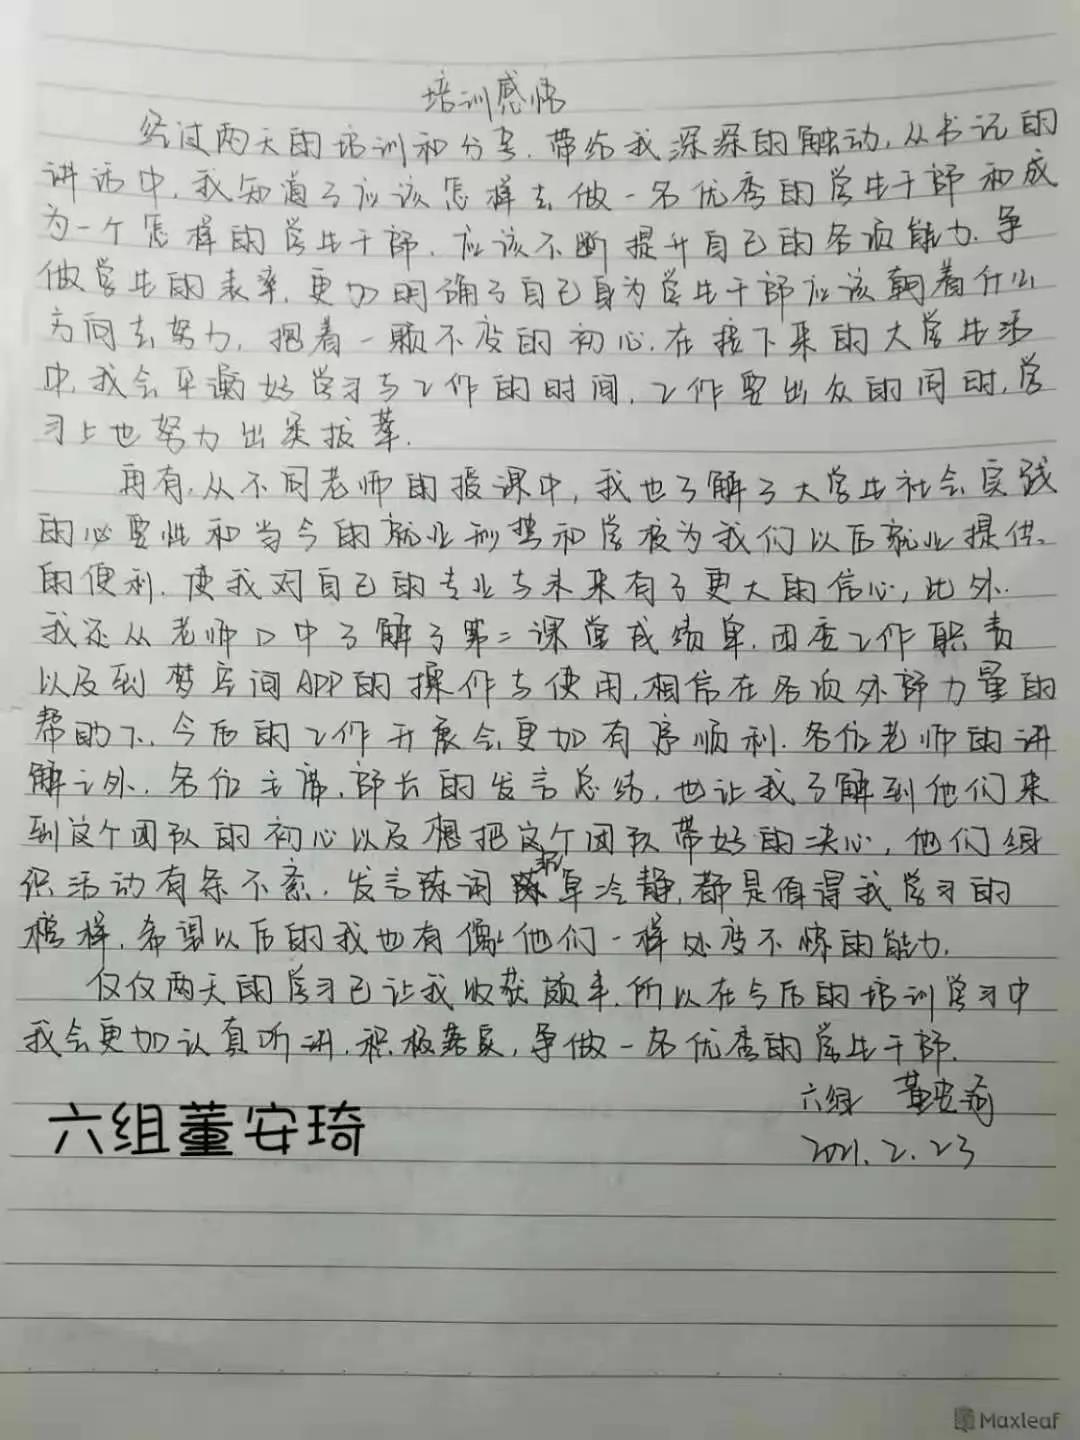 培训感悟
经过两天的培训和分享,带给我深深的触动,从书记的
讲话中,我知道了应该怎样去做一名优秀的学生干部和成
为一个怎样的学生干部,应该不断提升自己的各项能力,争
做学生的表率,更加明确了自己身为学生干部应该朝着什么
方向去努力,抱着一颗不变的初心,在接下来的大学生活
中,我会平衡好学习与工作的时间,工作要出众的同时,学
习上也努力出类拔萃.
再有,从不同老师的授课中,我也了解了大学生社会实践
的必要性和当今的就业形势和学校为我们以后就业提供
的便利,使我对自己的专业与未来有了更大的信心,此外
我还从老师口中了解了第二课堂成绩单,团委工作职责
以及到梦空间APP的操作与使用,相信在各项外部力量的
帮助下,今后的工作开展会更加有序顺利.各位老师的讲
解之外,各位主席,部长的发言总结,也让我了解到他们来
到这个团队的初心以及想把这个团队带好的决心,他们组
织活动有条不紊,发言陈词 沉着冷静,都是值得我学习的
榜样,希望以后的我也有像他们一样处变不惊的能力.
仅仅两天的学习已让我收获颇丰,所以在今后的培训学习中
我会更加认真听讲,积极落实,争做一名优秀的学生干部.
六组 董安琦
2021.2.23
六组董安琦
Maxleaf